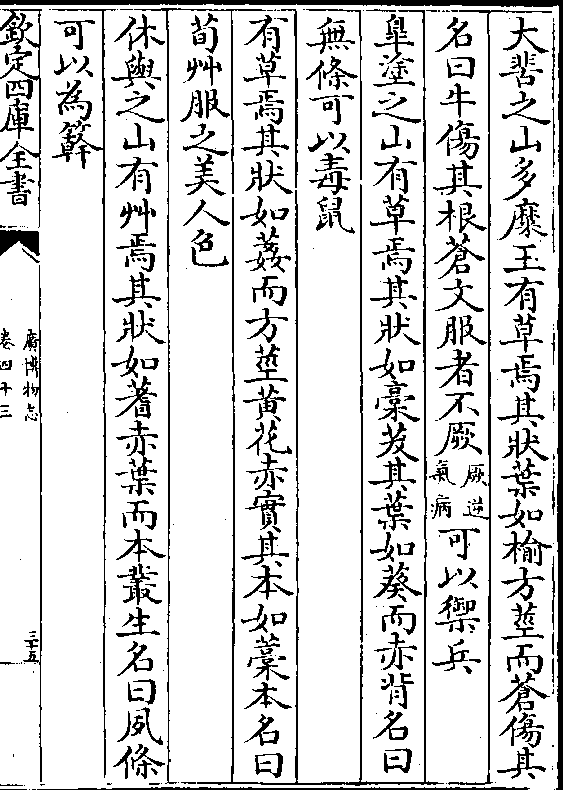 大𩇵之山多麋玉有草焉其狀葉如榆方莖而蒼傷其
名曰牛傷其根蒼文服者不厥厥逆氣病可以禦兵
臯塗之山有草焉其狀如稾茇其葉如葵而赤背名曰
無條可以毒鼠
有草焉其狀如葌而方莖黃花赤實其本如藁本名曰
荀艸服之美人色
休與之山有艸焉其狀如蓍赤葉而本叢生名曰夙條
可以為簳
欽定四庫全書
廣博物志
卷四十三
三十五